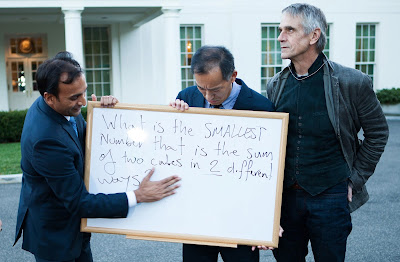 What is the SMALLEST
Number that is the sum
of two cubes in 2 different
ways